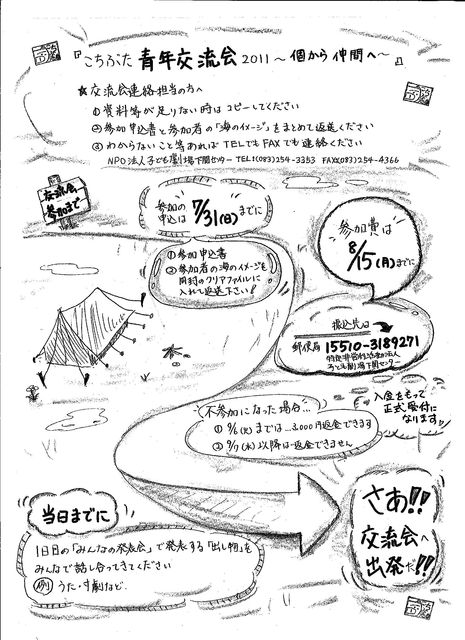 『こちぶた 青年交流会 2011 ～ 個から 仲間へ～』
★交流会連絡担当の方へ
①資料等が足りない時は コピーしてください
②参加申込書と参加者の「海のイメージ」をまとめて返送ください
③わからないこと等あれば TELでもFAXでも連絡ください
NPO法人子ども劇場下関センター TEL:(083)254-3353 FAX(083)254-4366
交流会
参加まで
参加の
申込は 7/31(日)までに
①参加申込書
②参加者の海のイメージを
同封のクリアファイルに
入れて返送下さい!
参加費は
8/15(月)までに
振込先は
郵便局 15510-3189271
特定非営利活動法人
子ども劇場下関センター
入金をもって
正式受付に
なります
不参加になった場合…
①9/6(火)までは…3,000円返金できます
②9/7(水)以降は…返金できません
当日までに
1日目の「みんなの発表会」で発表する「出し物」を
みんなで話し合ってきてください
例 うた・寸劇など…
さあ!!
交流会へ
出発だ!!